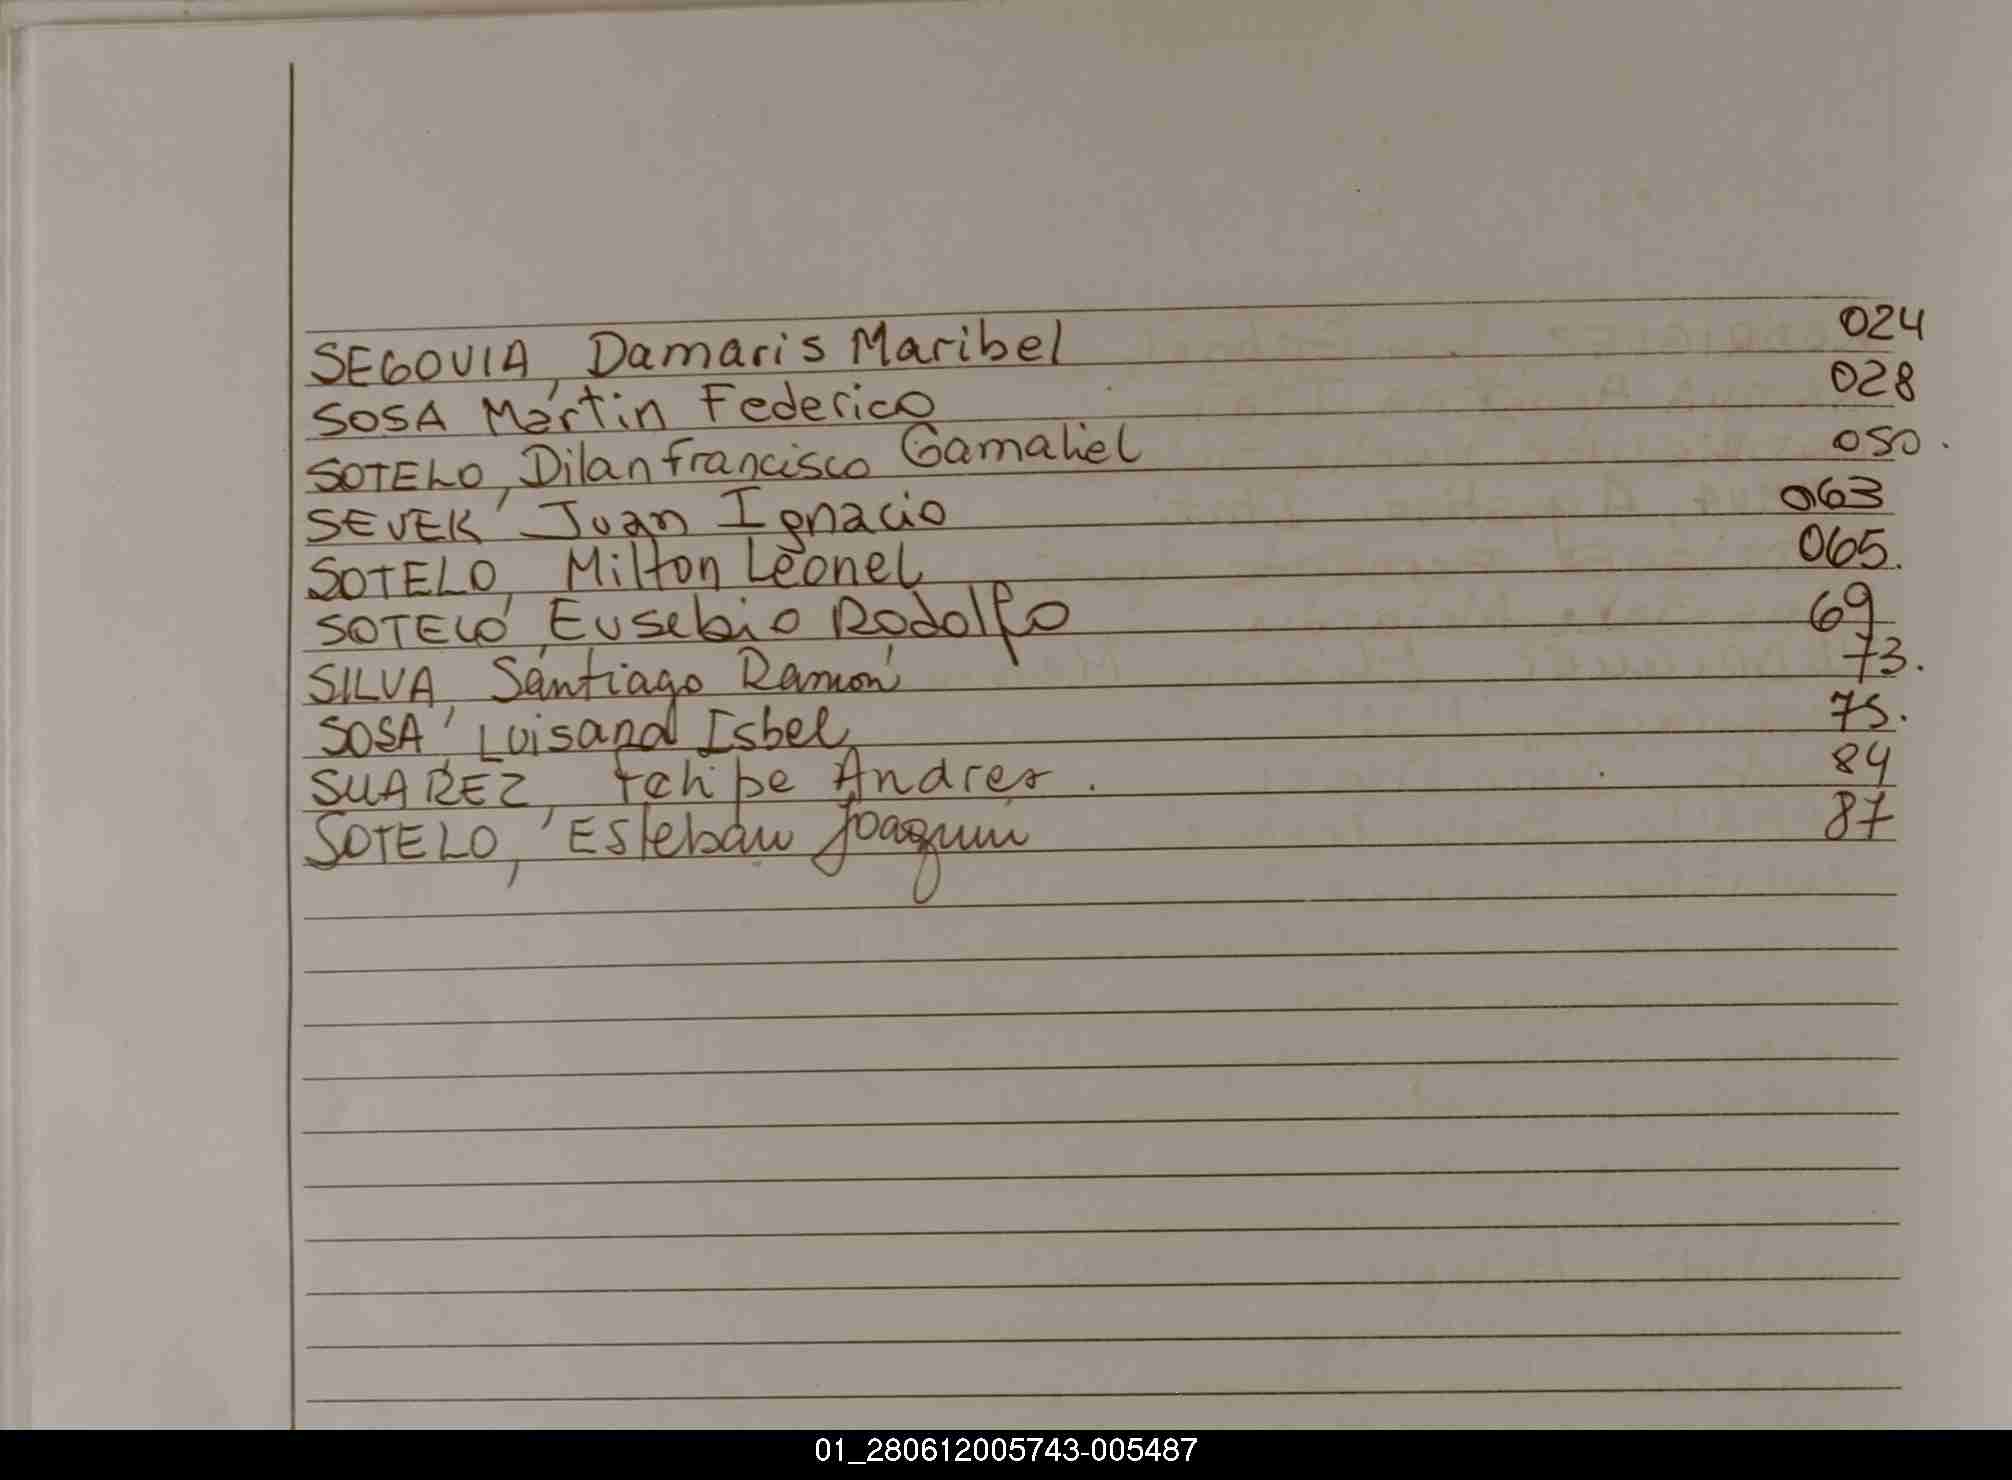 SEGOVIA, Damaris Maribel 024
SOSA, Martin Federico 028
SOTELO, Dilan francisco Gamaliel 050.
SEVER, Juan Ignacio 063
SOTELO, Milton Leonel 065.
SOTELO, Eusebio Rodolfo 69
SILVA, Santiago Ramón 73.
SOSA, Luisana Isbel 75.
SUAREZ, Felipe Andres. 84
SOTELO, Esteban Joaquin 87
01_280612005743-005487